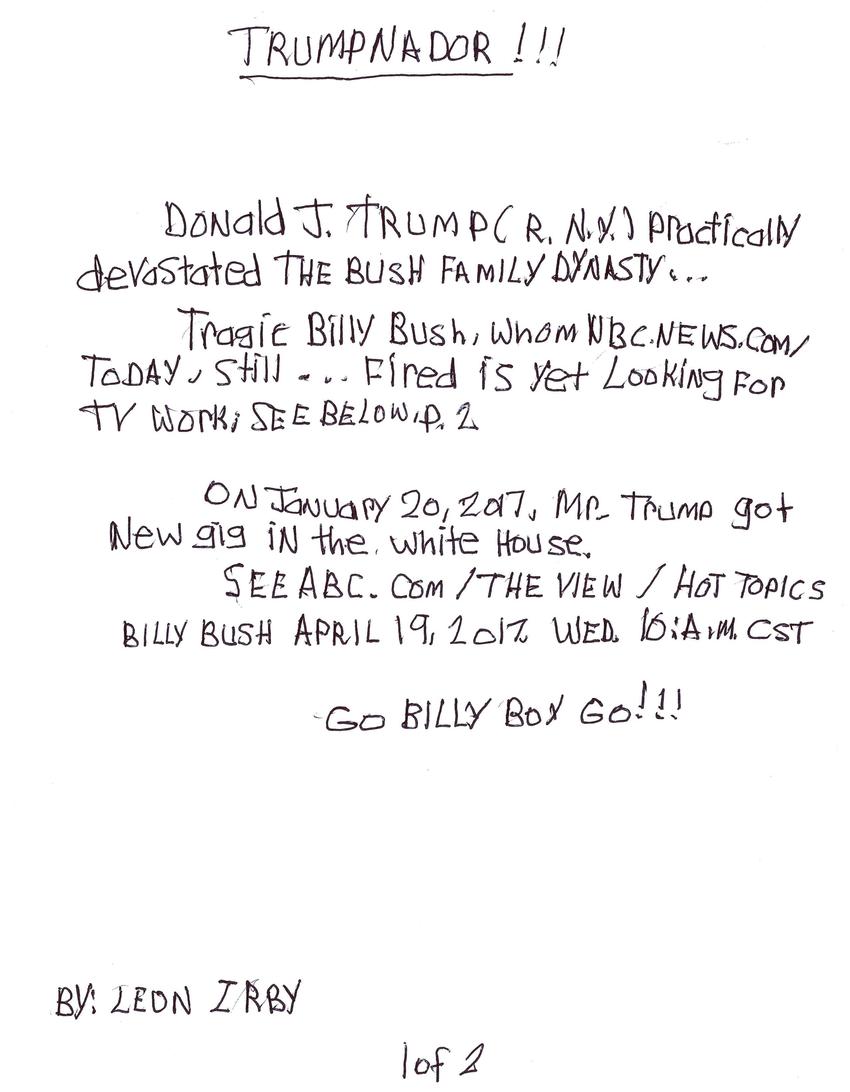 TRUMPNADOR !!!
Donald J. TRUMP (R. N.Y.) Practically
devastated THE BUSH FAMILY DYNASTY...
Tragic Billy Bush, whom NBC.NEWS.COM/
TODAY, still ... Fired is yet Looking For
TV WORK; SEE BELOW, P. 2
ON January 20, 2017, Mr. Trump got
New gig iN the. white House.
SEE ABC. Com / THE VIEW / HOT TOPICS
BILLY BUSH APRIL 19, 2017 WED. 10:A.M. CST
GO BILLY BOY GO!!!
BY: LEON IRBY
1 of 2